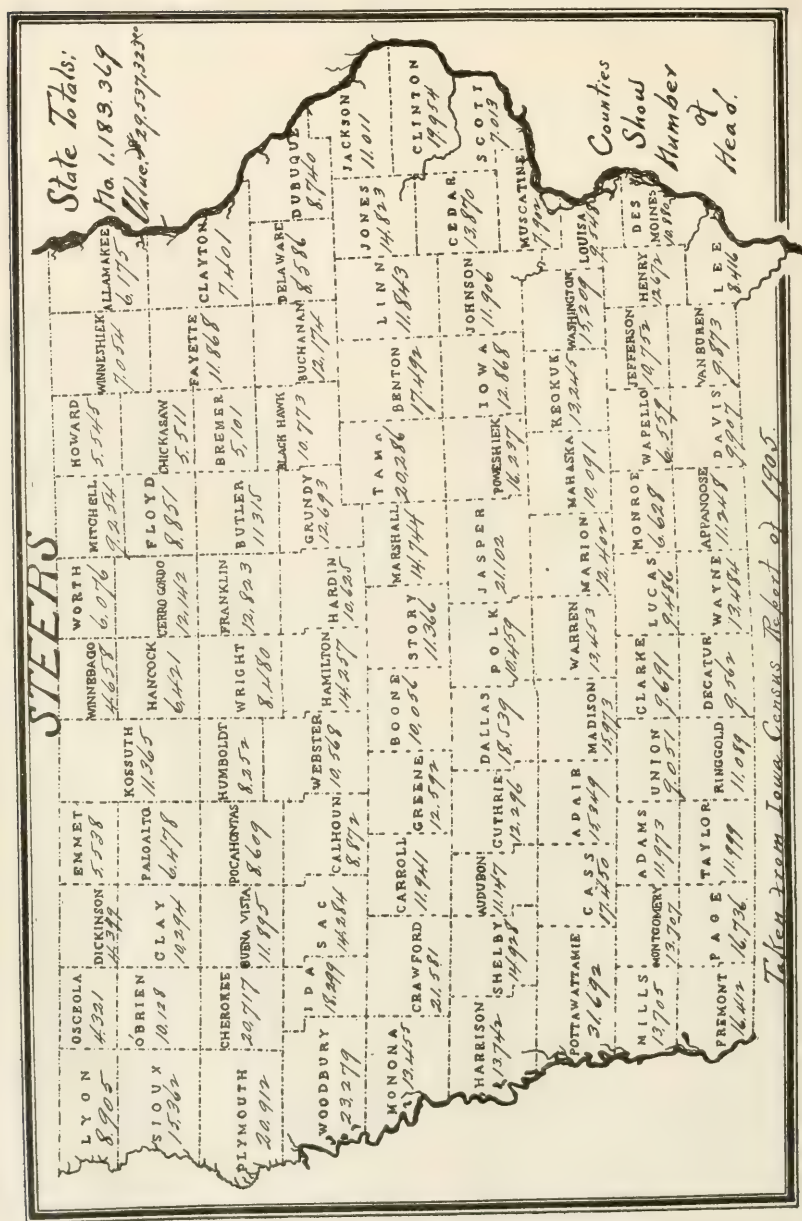 STEERS
State Totals:
No. 1.183.369
Value. $29.537,323.00
LYON
8.905
OSCEOLA
4.321
DICKINSON
EMMET
5.538
KOSSUTH
11.365
WINNEBAGO
4.658
WORTH
6.076
MITCHELL
9.254
HOWARD
5.545
WINNESHIEK
7.054
ALLAMAKEE
6.175
SIOUX
15.362
O'BRIEN
10.128
CLAY
10.294
PALO ALTO
6.478
HANCOCK
6.421
CERRO GORDO
12.142
FLOYD
8.851
CHICKASAW
5.511
FAYETTE
11.868
CLAYTON
7.401
PLYMOUTH
20.912
CHEROKEE
20.717
BUENA VISTA
11.895
POCAHONTAS
8.609
HUMBOLDT
8.252
WRIGHT
8.480
FRANKLIN
12.823
BUTLER
11.315
BREMER
5.101
WOODBURY
23.279
IDA
18.299
SAC
14.284
CALHOUN
8.872
WEBSTER
10.568
HAMILTON
14.257
HARDIN
10.625
GRUNDY
12.693
BLACK HAWK
10.773
BUCHANAN
12.174
DELAWARE
8.586
DUBUQUE
8.740
MONONA
13.455
CRAWFORD
21.581
CARROLL
11.941
GREENE
12.592
BOONE
10.056
STORY
11.366
MARSHALL
14.744
TAMA
20.286
BENTON
17.492
LINN
11.843
JONES
14.823
JACKSON
11.011
CLINTON
19.954
HARRISON
13.742
SHELBY
14.928
AUDUBON
11.147
GUTHRIE
12.296
DALLAS
18.539
POLK
10.459
JASPER
21.102
POWESHIEK
16.237
IOWA
12.868
JOHNSON
11.906
CEDAR
13.870
SCOTT
7.013
MUSCATINE
7.902
POTTAWATTAMIE
31.692
CASS
17.450
ADAIR
15.349
MADISON
15.973
WARREN
13.453
MARION
12.402
MAHASKA
10.091
KEOKUK
13.245
WASHINGTON
15.209
LOUISA
9.548
MILLS
13.705
MONTGOMERY
13.707
ADAMS
11.973
UNION
9.051
CLARKE
9.691
LUCAS
9.486
MONROE
6.628
WAPELLO
6.539
JEFFERSON
10.752
HENRY
12.672
DES MOINES
10.880
FREMONT
16.412
PAGE
16.736
TAYLOR
11.999
RINGGOLD
11.089
DECATUR
9.562
WAYNE
13.484
APPANOOSE
11.248
DAVIS
9.907
VAN BUREN
9.873
LEE
8.416
Counties
Show
Number
of
Head.
Taken from Iowa Census Report of 1905.